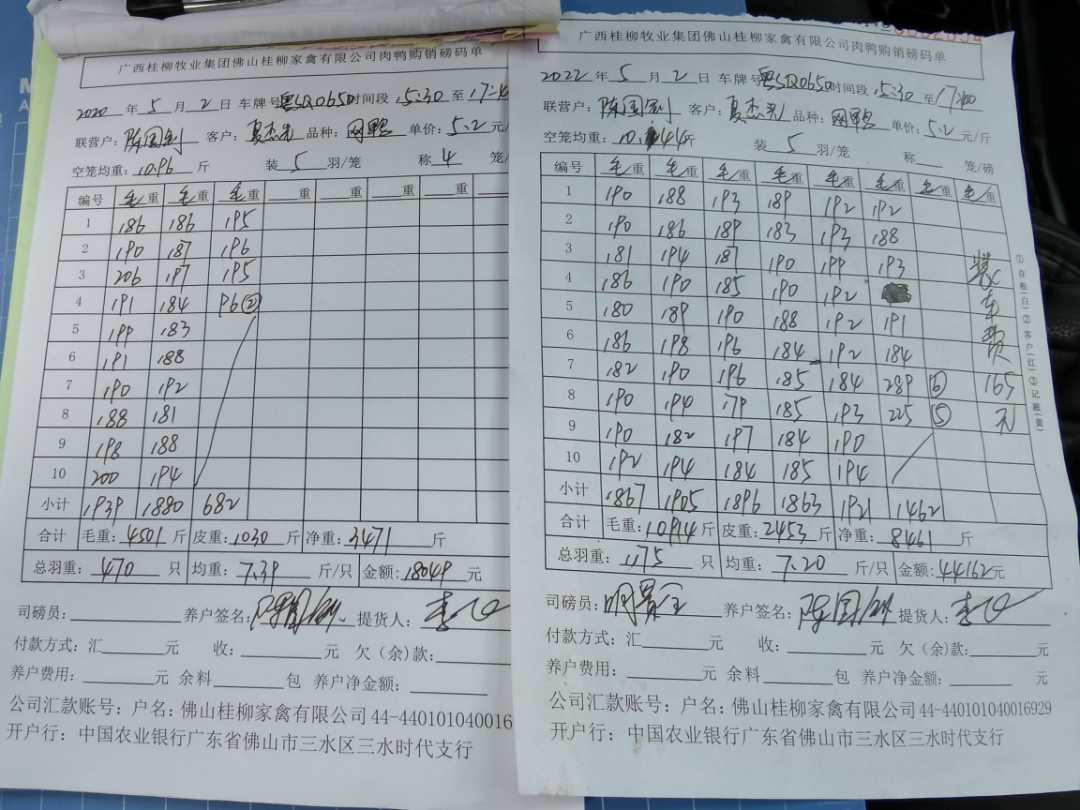 广西桂柳牧业集团佛山桂柳家禽有限公司肉鸭购销磅码单
2020 年 5 月 2 日 车牌号 粤SQ0650 时间段 15:30 至
联营户: 陈国钊 客户: 夏杰光 品种: 网鸭 单价: 5.2 元/
空笼均重: 10.96 斤 装 5 羽/笼 称 4 笼/
编号 毛重 毛重 毛重 重 重 重 重
1 186 186 195
2 190 187 196
3 206 197 195
4 191 184 96 ②
5 199 183
6 191 188
7 190 192
8 188 181
9 198 188
10 200 194
小计 1939 1880 682
合计 毛重: 4501 斤 皮重: 1030 斤 净重: 3471 斤
总羽重: 470 只 均重: 7.39 斤/只 金额: 18049 元
司磅员: 养户签名: 陈国钊 提货人:
付款方式: 汇 元 收: 元 欠(余)款:
养户费用: 元 余料 包 养户净金额:
公司汇款账号: 户名: 佛山桂柳家禽有限公司 44-440101040016
开户行: 中国农业银行广东省佛山市三水区三水时代支行
广西桂柳牧业集团佛山桂柳家禽有限公司肉鸭购销磅码单
2022 年 5 月 2 日 车牌号 粤SQ0650 时间段 15:30 至 17:00
联营户: 陈国钊 客户: 夏杰光 品种: 网鸭 单价: 5.2 元/斤
空笼均重: 10.44 斤 装 5 羽/笼 称 笼/磅
编号 毛重 毛重 毛重 毛重 毛重 毛重 毛重 毛重
1 190 188 193 189 192 192
2 190 186 189 183 193 188
3 181 194 187 190 199 193
4 186 190 185 190 192
5 180 189 190 188 192 191
6 186 198 196 184 192 184
7 182 190 196 185 184 289 ⑤
8 190 194 179 185 193 225 ⑤
9 190 182 197 184 190
10 192 194 184 185 194
装车费 165元
小计 1867 1905 1896 1863 1921 1462
合计 毛重: 10914 斤 皮重: 2453 斤 净重: 8461 斤
总羽重: 1175 只 均重: 7.20 斤/只 金额: 44162 元
司磅员: 养户签名: 陈国钊 提货人:
付款方式: 汇 元 收: 元 欠(余)款: 元
养户费用: 元 余料 包 养户净金额: 元
公司汇款账号: 户名: 佛山桂柳家禽有限公司 44-440101040016929
开户行: 中国农业银行广东省佛山市三水区三水时代支行
①存根(白)②客户(红)③记账(黄)